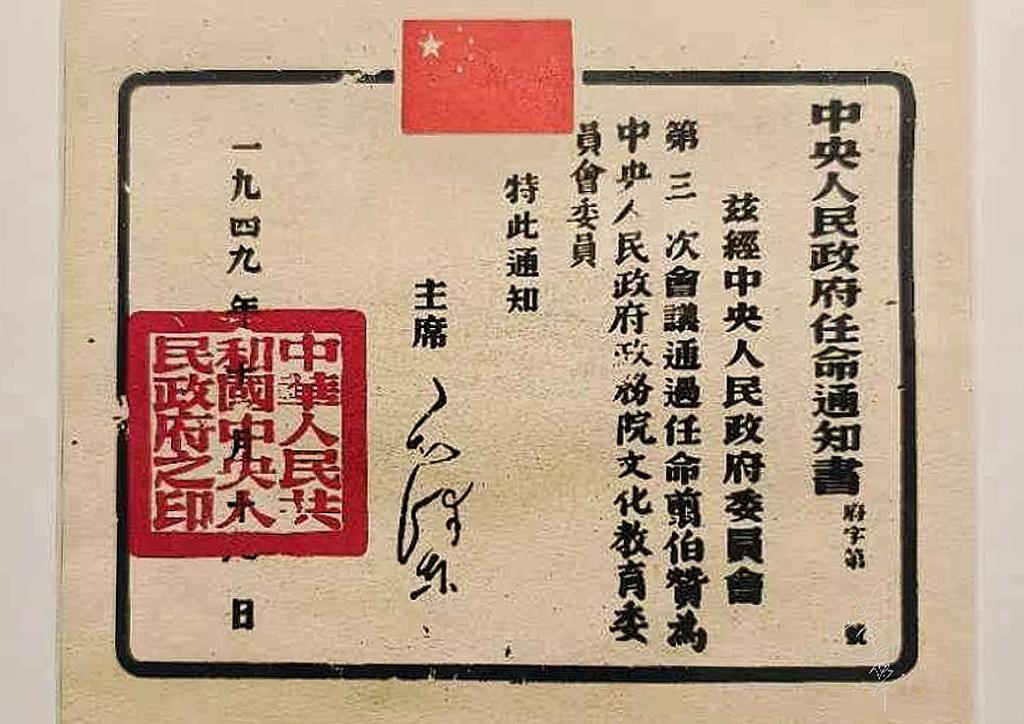 中央人民政府任命通知書
府字第 號
茲經中央人民政府委員會
第三次會議通過任命翦伯贊為
中央人民政府政務院文化教育委
員會委員
特此通知
主席
毛澤東
一九四九年十月十九日
中華人民共
和國中央人
民政府之印